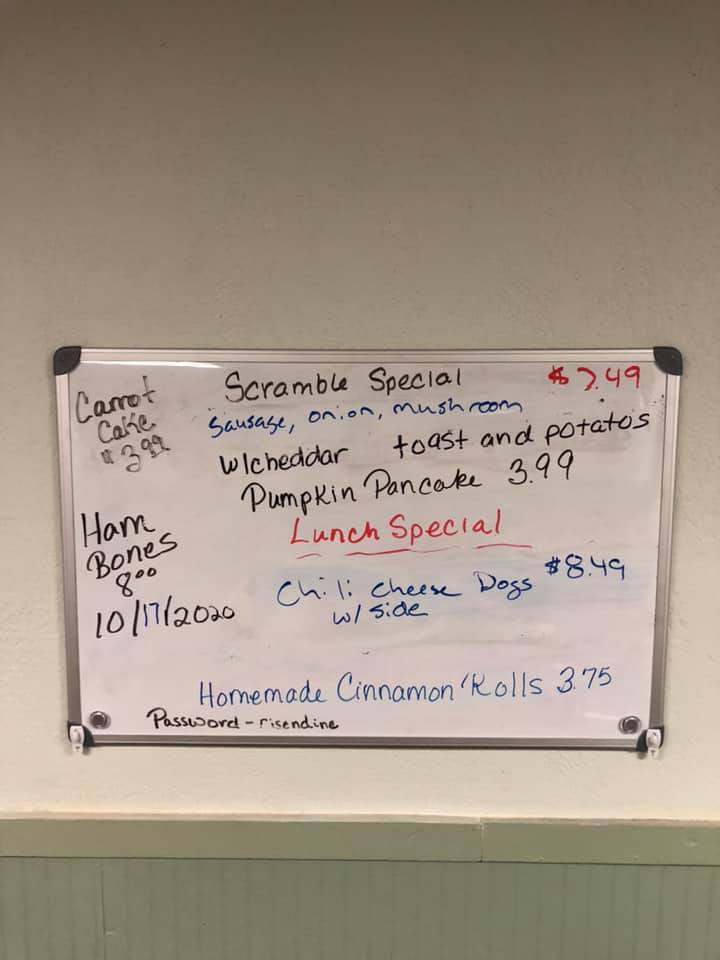 Carrot
Cake
$3.99
Ham
Bones
8.00
10/17/2020
Scramble Special $7.49
Sausage, onion, mushroom
w/cheddar toast and potatos
Pumpkin Pancake 3.99
Lunch Special
Chili Cheese Dogs $8.49
w/ side
Homemade Cinnamon Rolls 3.75
Password - risendine